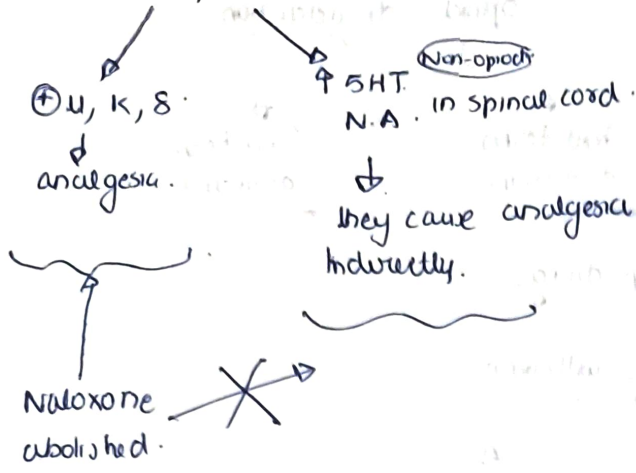 ⊕ μ, K, δ.
↓
analgesia.
↑ 5HT. Non-opiod
N.A. in spinal cord.
↓
they cause analgesia
Indirectly.
Naloxone
abolished.